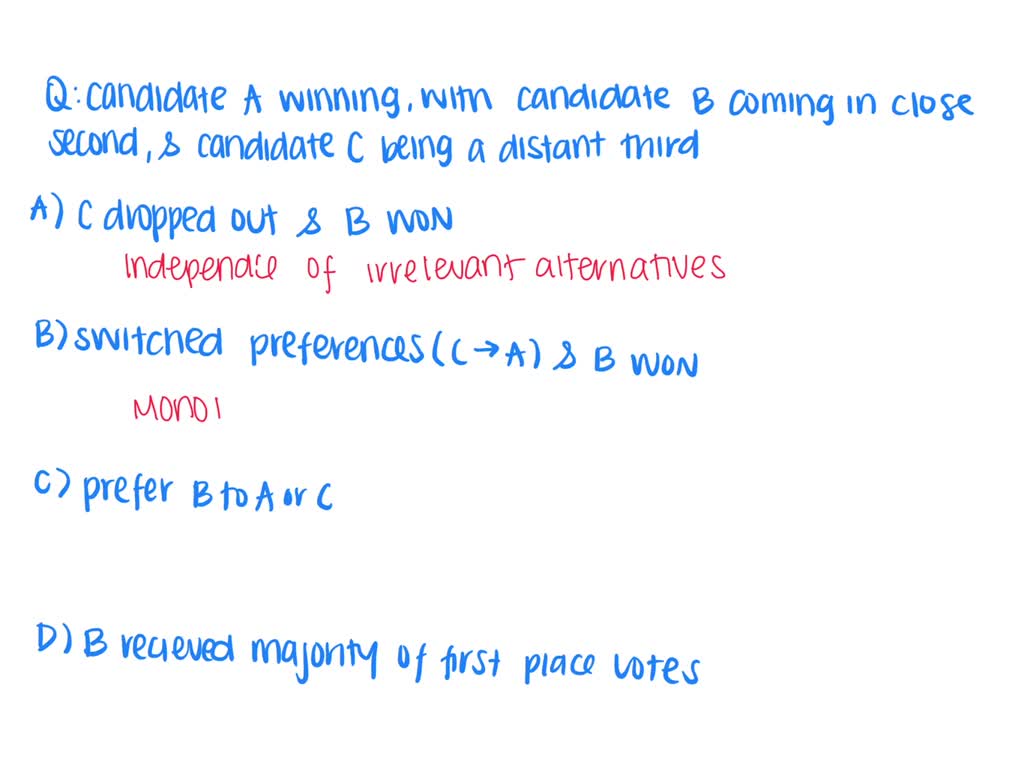 Q: candidate A winning, with candidate B coming in close
second, & candidate C being a distant third
A) C dropped out & B won
Independce of irrelevant alternatives
B) switched preferences (C → A) & B won
Mono
C) prefer B to A or C
D) B recieved majority of first place votes